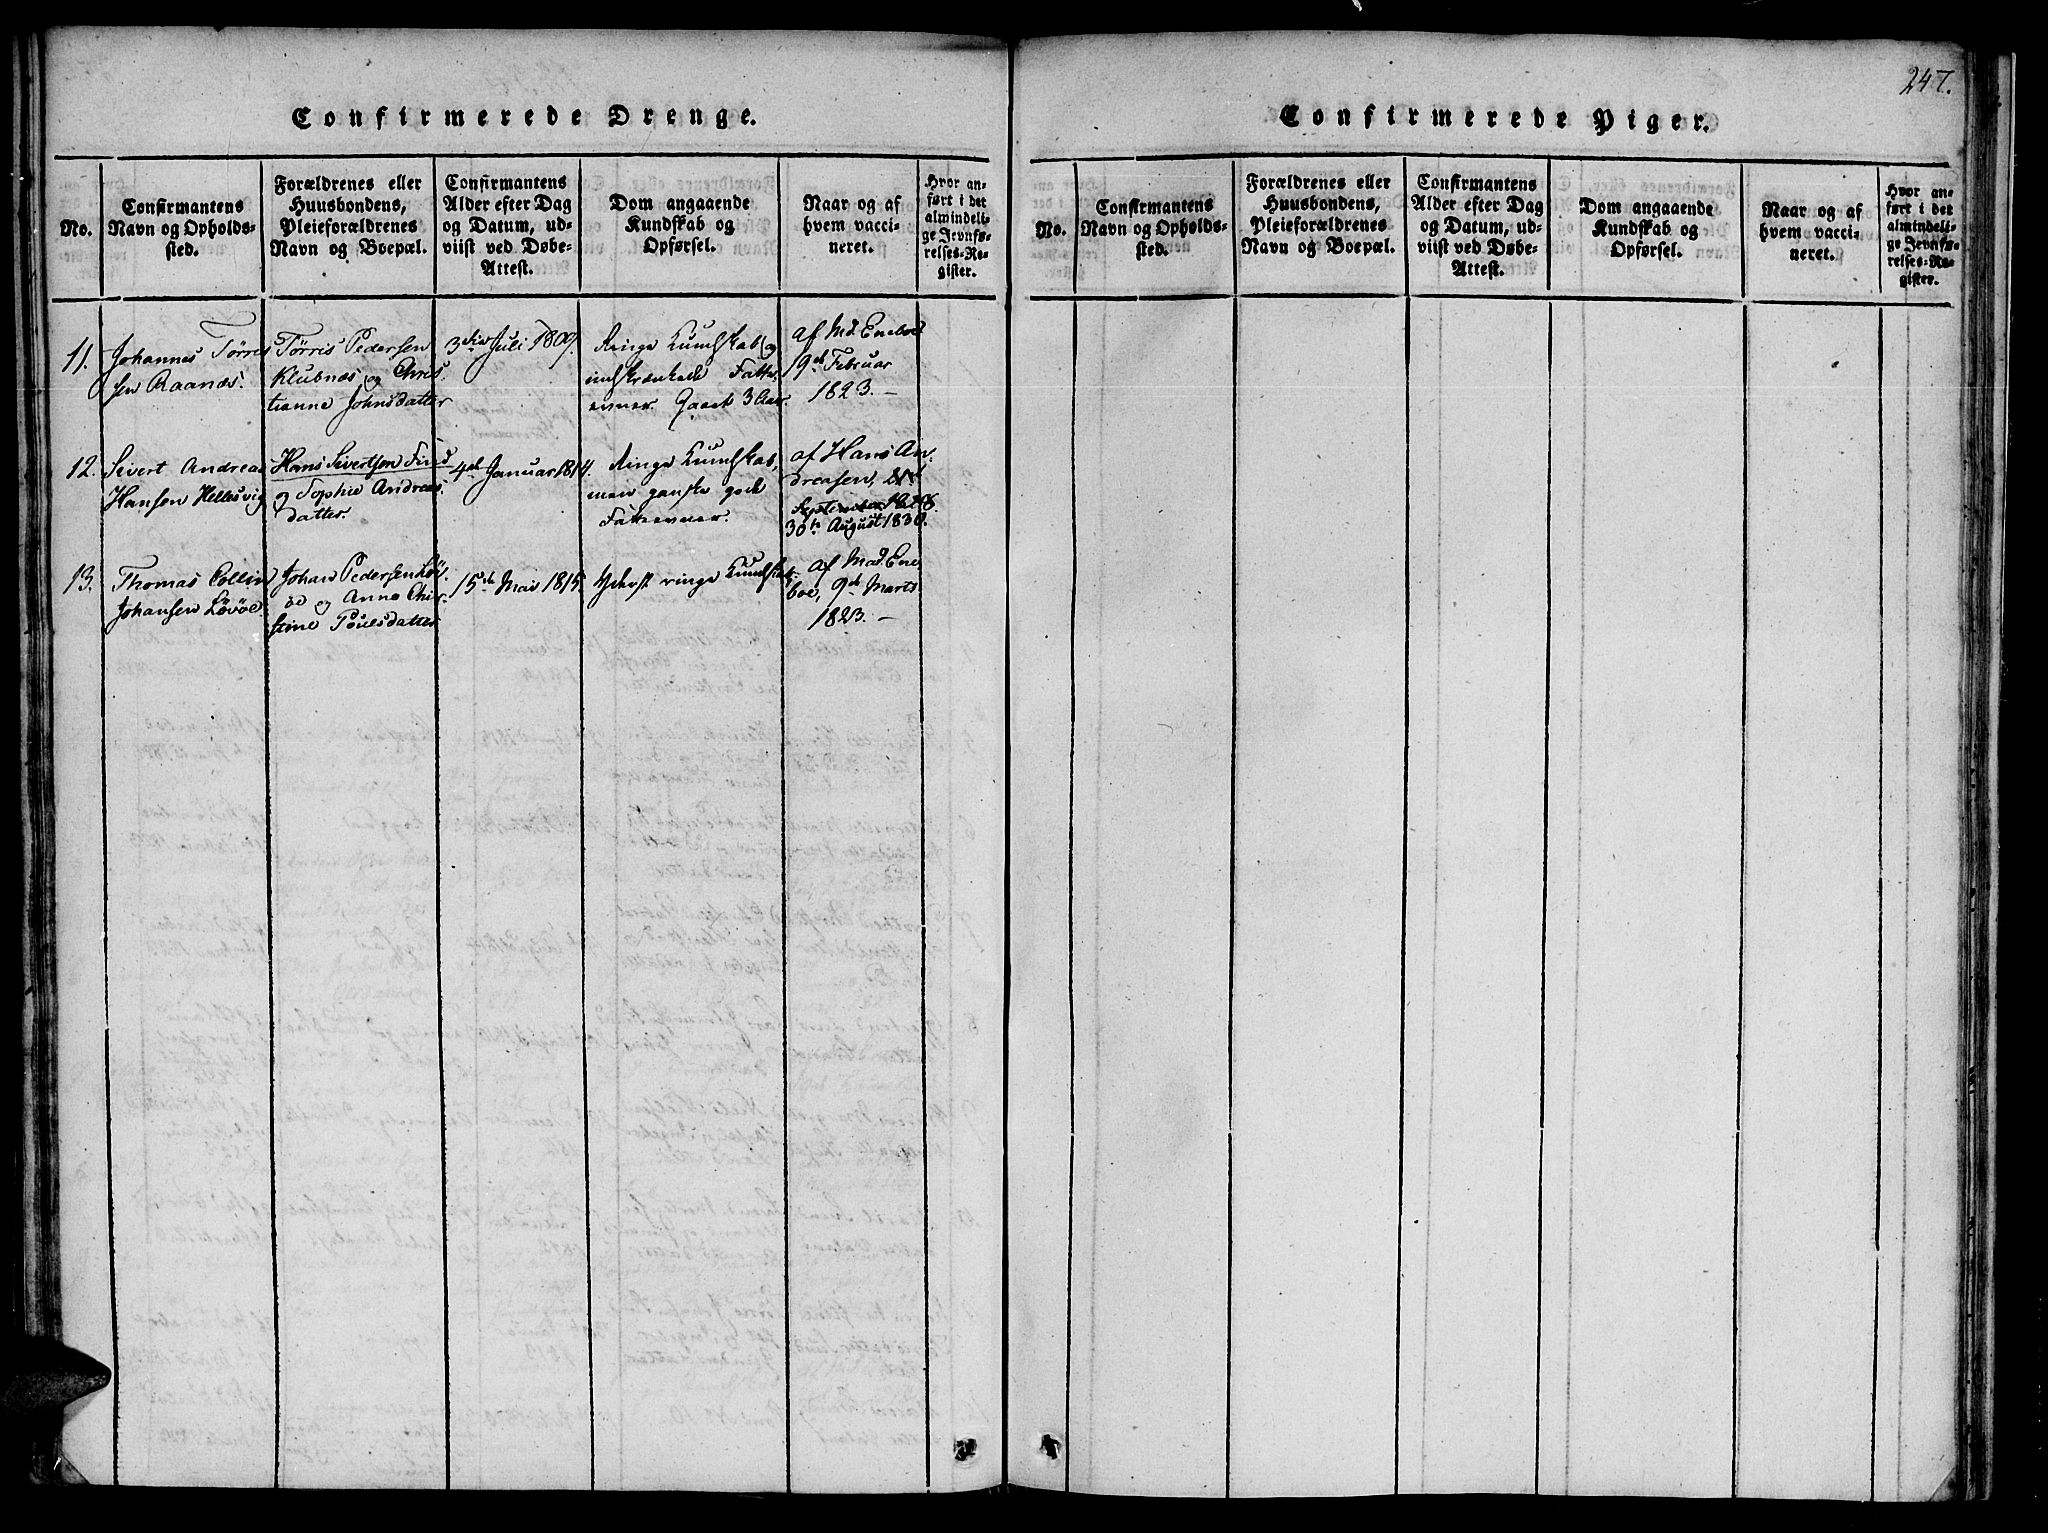 247.
Confirmerede Drenge.
No.
Confirmantens
Navn og Opholds-
sted.
Forældrenes eller
Huusbondens,
Pleieforældrenes
Navn og Boepæl.
Confirmantens
Alder efter Dag
og Datum, ud-
viist ved Døbe-
Attest.
Dom angaaende
Kundskab og
Opførsel.
Naar og af
hvem vacci-
neret.
Hvor an-
ført i det
almindeli-
ge Jevnfø-
relses-Re-
gister.
11.
Johannes Tørris
sen Raanæs.
Tørris Pedersen
Klubnæs og Chris
tianne Johnsdatter
3die Juli 1809.
Ringe Kundskab og
indskrænkede Fatte-
evner. Gaaet 3 Aar.
af Md. Eneboe
19de Februar
1823. —
12.
Sivert Andreas
Hansen Hellesvig
Hans Sivertsen Finds
og Sophie Andreas-
datter.
4de Januar 1814.
Ringe Kundskab,
men ganske gode
Fatteevner.
af Hans An-
dreasen,
September 1828.
30te August 1830.
13.
Thomas Collin
Johansen Løvøe
Johan Pedersen Løv-
øe og Anne Chir-
stine Poulsdatter
15de Mai 1815.
Yderst ringe Kundskab.
af Mad. Ene-
boe, 9de Marts
1823. —
Confirmerede Piger.
No.
Confirmantens
Navn og Opholds-
sted.
Forældrenes eller
Huusbondens,
Pleieforældrenes
Navn og Boepæl.
Confirmantens
Alder efter Dag
og Datum, ud-
viist ved Døbe-
Attest.
Dom angaaende
Kundskab og
Opførsel.
Naar og af
hvem vacci-
neret.
Hvor an-
ført i det
almindeli-
ge Jevnfø-
relses-Re-
gister.